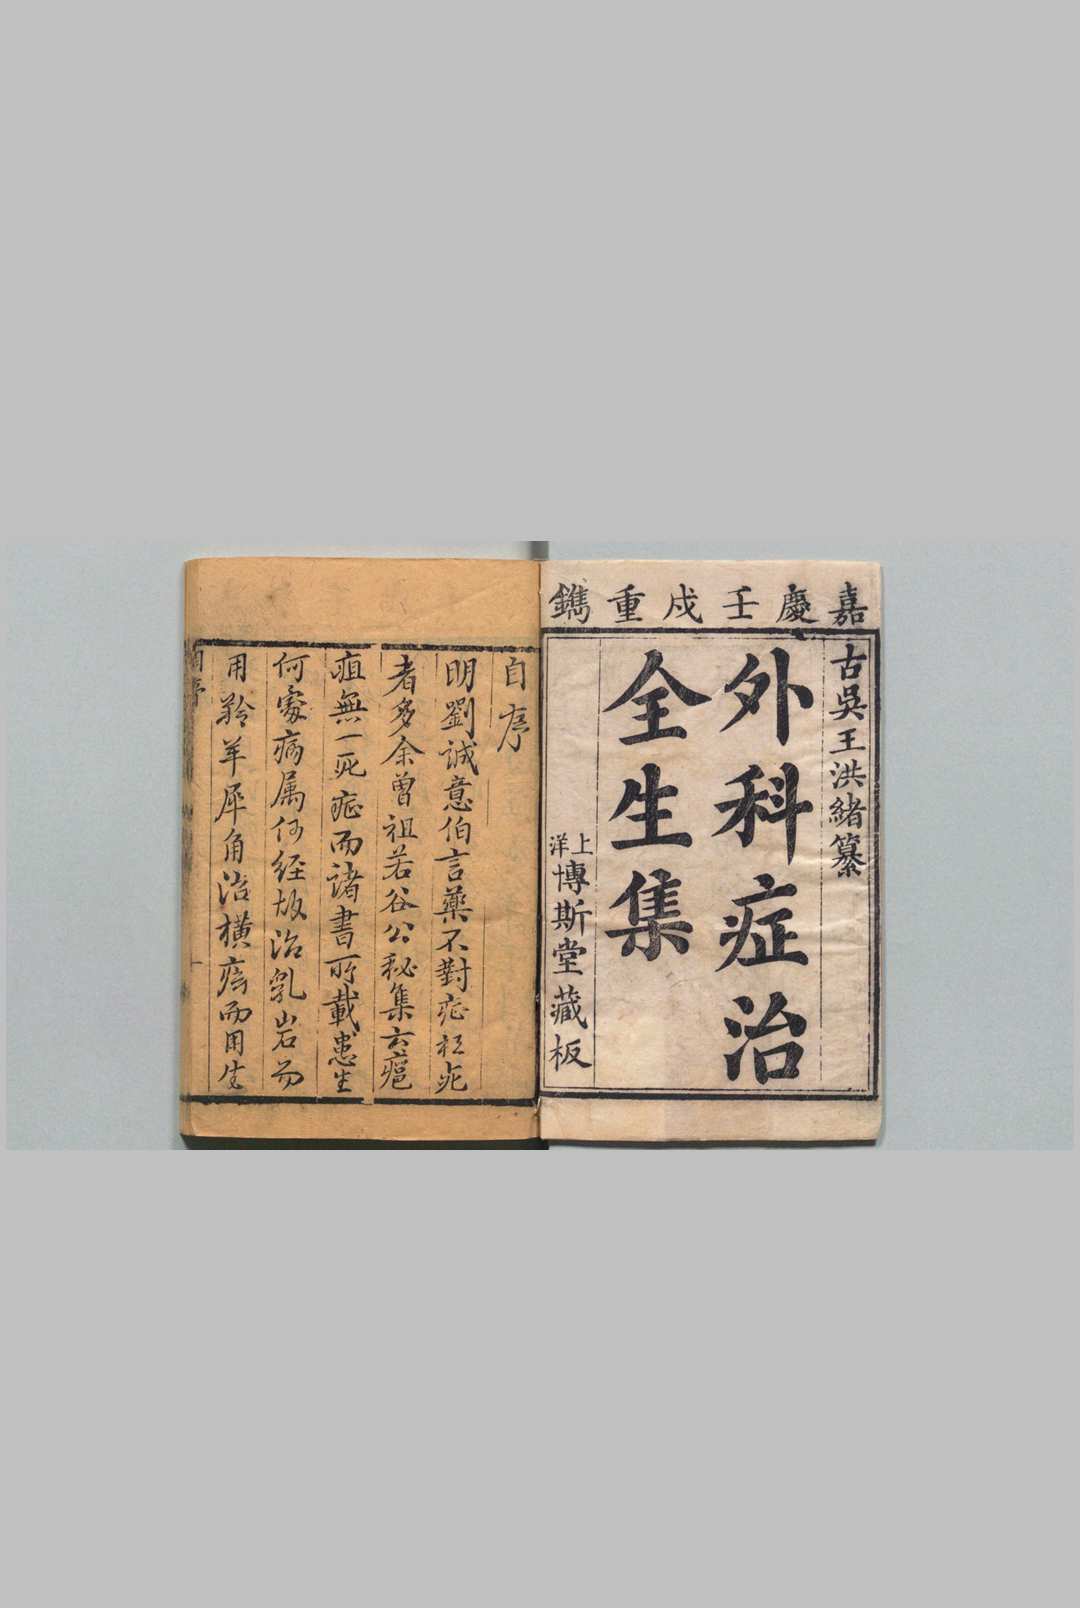 嘉慶壬戌重鐫
古吳王洪緒纂
外科症治
全生集
上洋博斯堂藏板
自序
明劉誠意伯言藥不對症枉死
者多余曾祖若谷公秘集云癰
疽無一死症而諸書所載患生
何處病属何经故治乳岩而
用羚羊犀角治橫痃而用生
自序